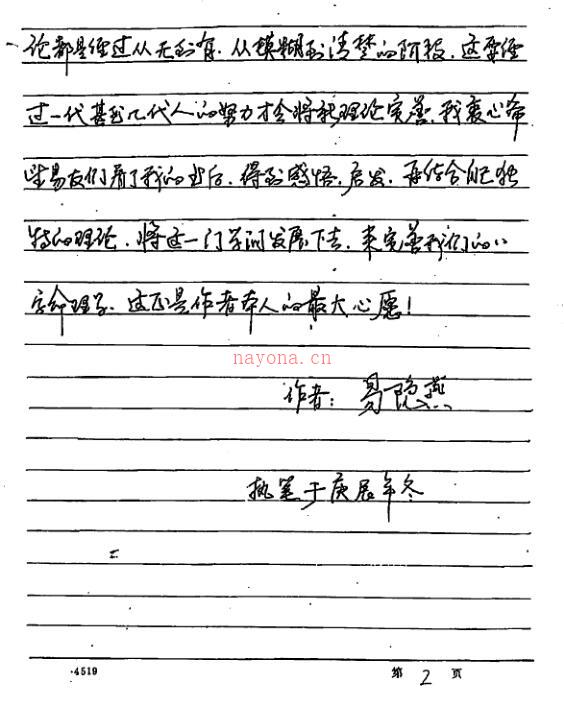 论都是经过从无到有、从模糊到清楚的阶段,这要经
过一代甚至几代人的努力才会将新理论完善,我衷心希
望易友们看了我的书后,得到感悟、启发,再结合自己独
特的理论,将这一门学问发展下去,来完善我们的八
字命理学,这正是作者本人的最大心愿!
nayona.cn
作者:易隐燕
执笔于庚辰年冬
·4519
第 2 页